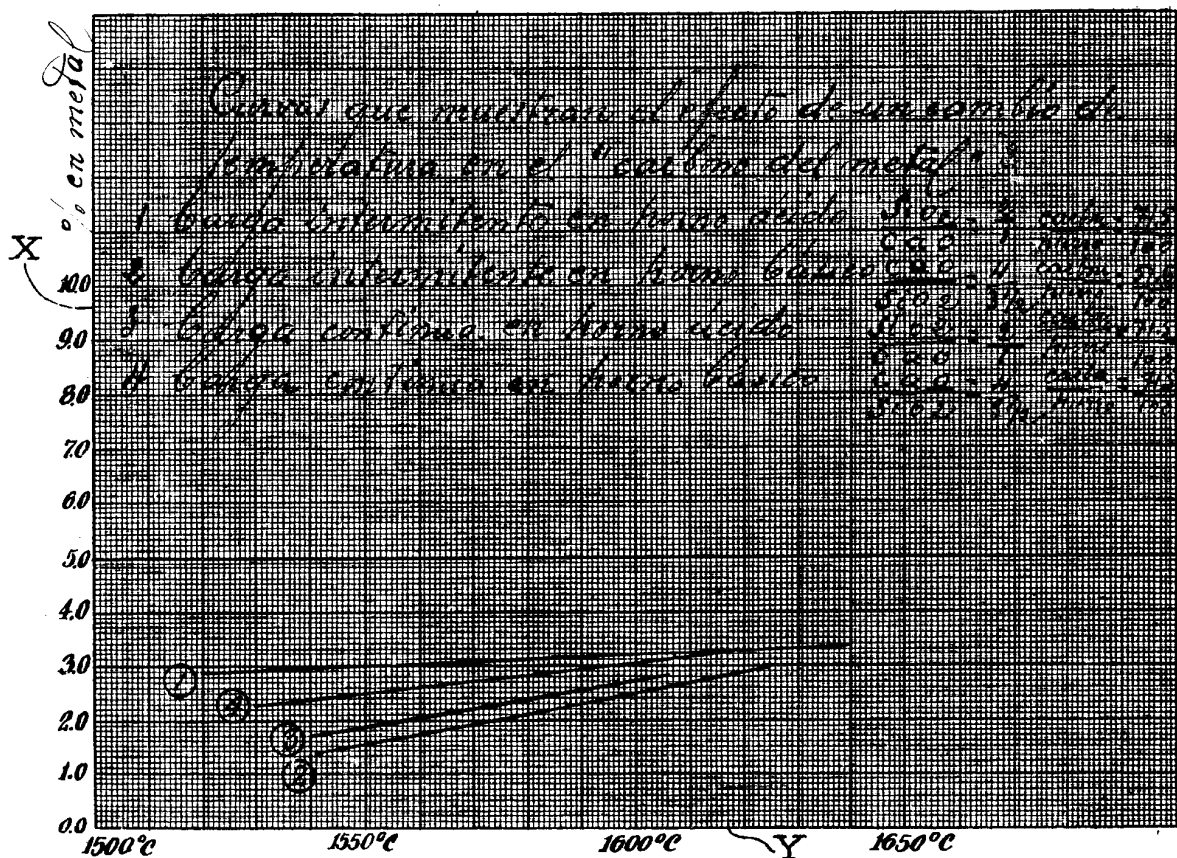 % en metal
Curvas que muestran el efecto de un cambio de
temperatura en el "carbono del metal"
1 Carga intermitente en horno ácido SiO2 / CaO = 2 / 1 = 71.5 / 100
2 Carga intermitente en horno básico CaO / SiO2 = 4 / 100
3 Carga continua en horno ácido SiO2 / CaO = 71.5 / 100
4 Carga continua en horno básico CaO / SiO2 = 4 / 100
X
10.0
9.0
8.0
7.0
6.0
5.0
4.0
3.0
2.0
1.0
0.0
1
4
3
2
1500°C 1550°C 1600°C 1650°C
Y